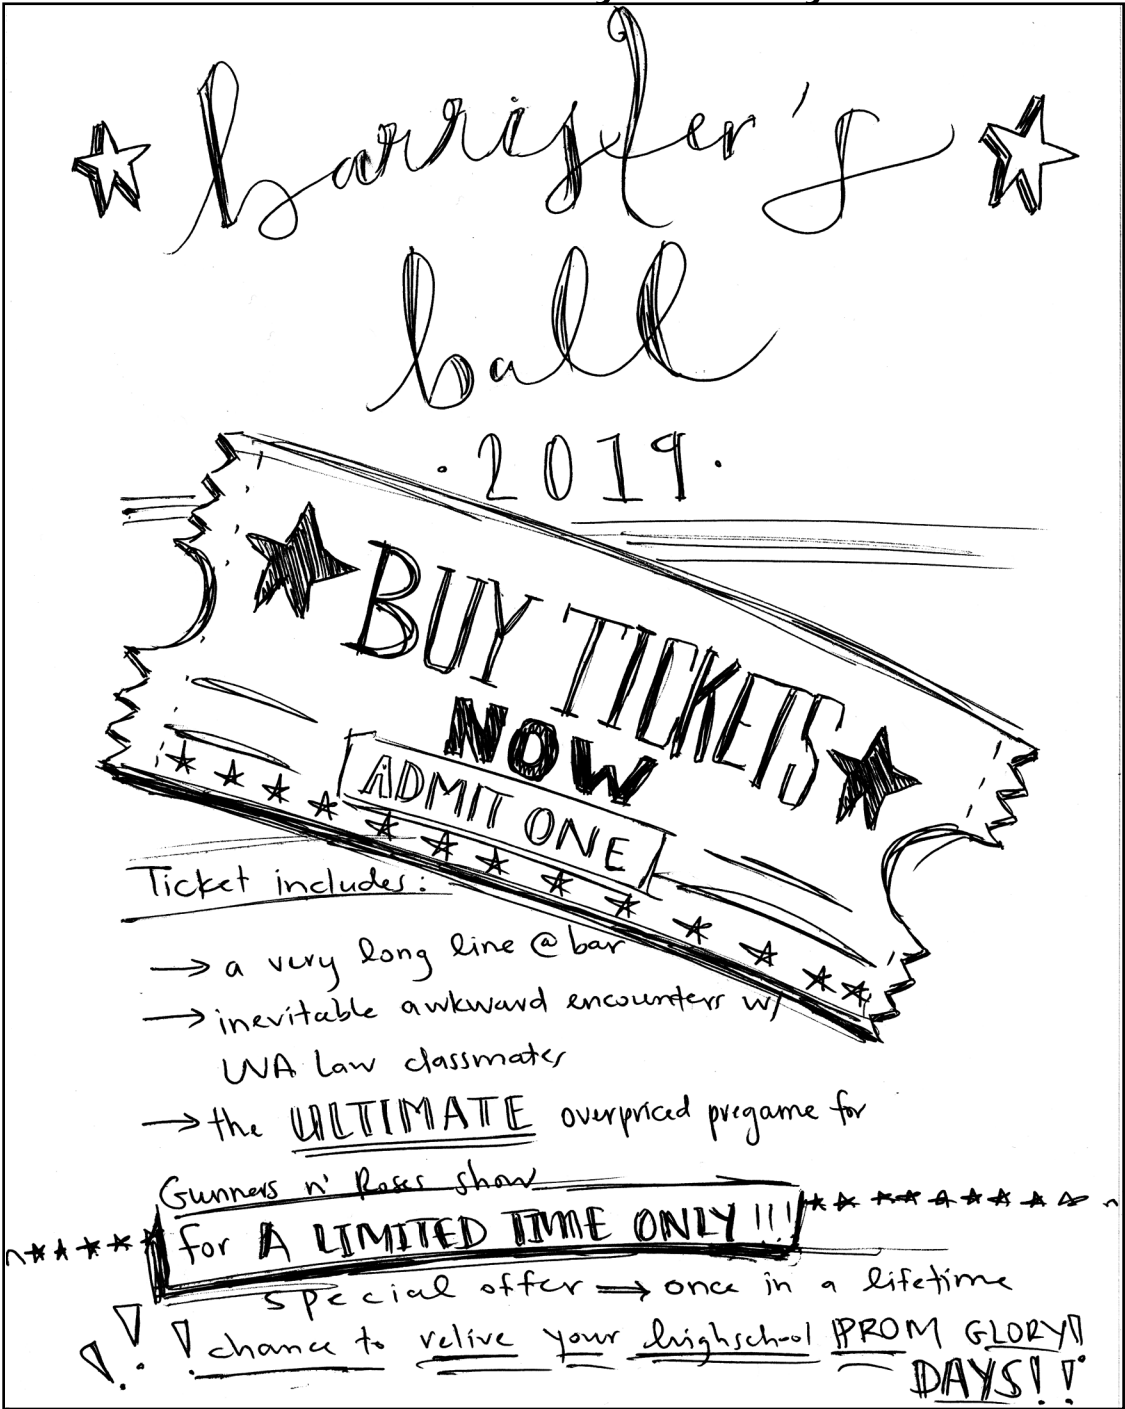 barrister's
ball
·2019·
BUY TICKETS
NOW
ADMIT ONE
Ticket includes:
→ a very long line @ bar
→ inevitable awkward encounters w/
UVA Law classmates
→ the ULTIMATE overpriced pregame for
Gunners n' Roses show
for A LIMITED TIME ONLY!!!
special offer ⇒ once in a lifetime
!!! chance to relive your highschool PROM GLORY!
DAYS!!